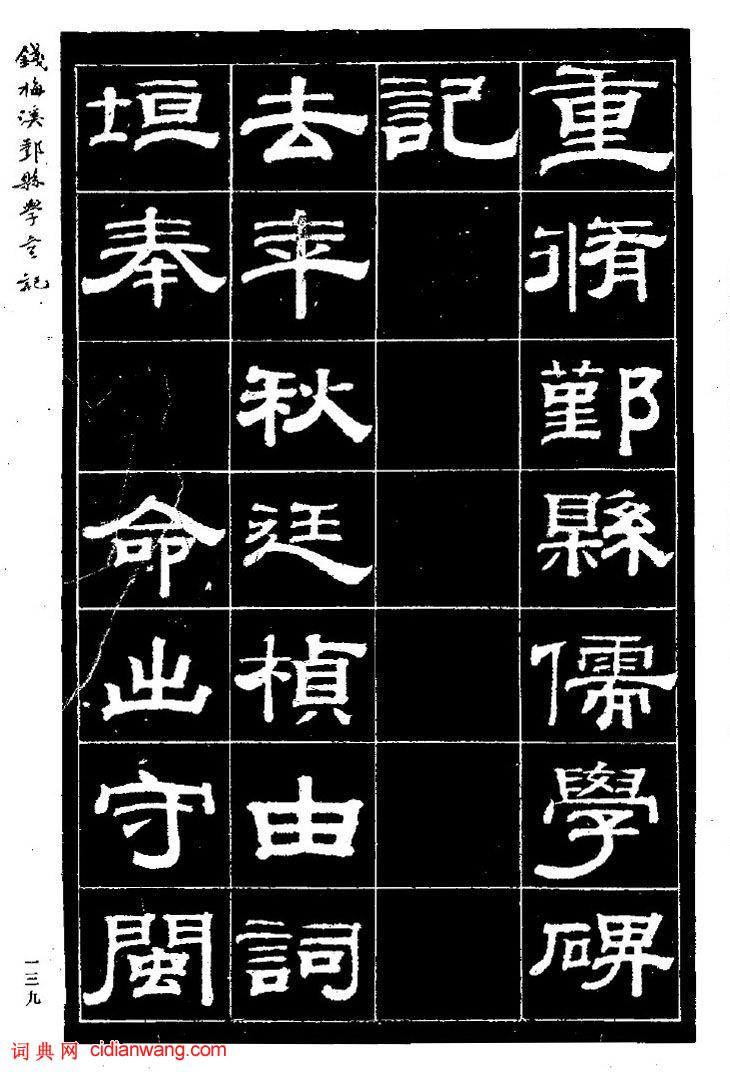 重脩鄞縣儒學碑
記
去年秋廷楨由詞
垣奉命出守閩
錢梅溪鄞縣學宮記
一三九
词典网 cidianwang.com